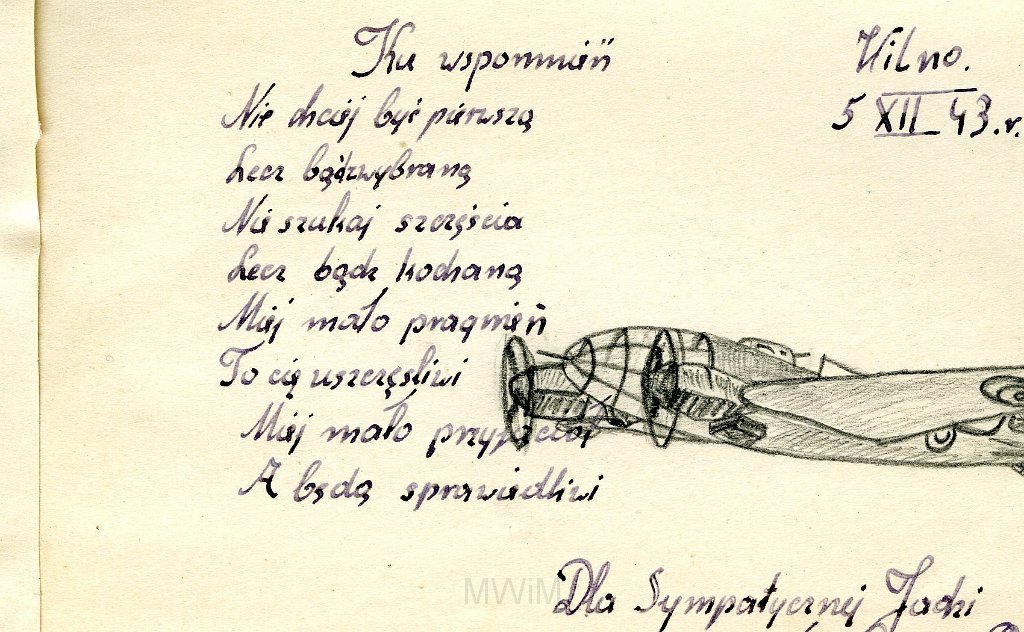 Ku wspomnień
Wilno.
5 XII 43.r.
Nie chciej być pierwszą
Lecz bądź wybraną
Nie szukaj szczęścia
Lecz bądz kochaną
Miej mało pragnień
To cię uszczęśliwi
Miej mało przyjaciół
A będą sprawiedliwi
MWiM
Dla Sympatycznej Jadzi